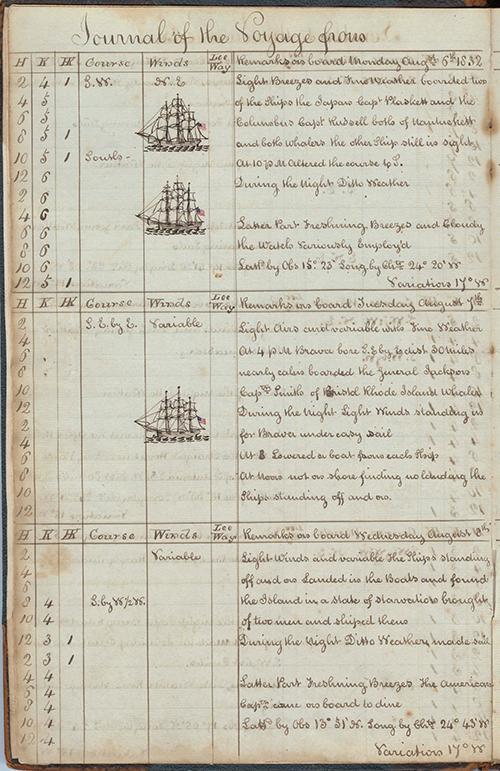 Journal of the Voyage from
H K HK Course Winds Lee Way Remarks on board Monday Augst 6th 1832
2 4 1 S.W. N.E Light Breezes and Fine Weather boarded two
4 5 of the Ships the Japan Capt Plaskett and the
6 5 Columbus Capt Russell both of Nantuckett
8 5 1 and both whalers the other Ship still in sight
10 5 1 South- At 10 P M altered the course to S.
12 6 During the Night Ditto Weather
2 6
4 6 Latter Part Freshning Breezes and Cloudy
6 6 the Watch Variously Employ'd
8 6
10 6 Latt by Obs 15° 23' Long by Chr 24° 20' W
12 5 1 Variation 17° W
H K HK Course Winds Lee Way Remarks on board Tuesday August 7th
2 S.E. by E. Variable Light Airs and variable with Fine Weather
4 At 4 P M Brava bore S.E by E dist 30 Miles
6 nearly calm boarded the General Jackson
8
10 Capt Smith of Bristol Rhode Island Whaler
12 During the Night Light Winds standing in
2 for Brava under easy sail
4
6 At 8 Lowered a boat from each Ship
8 At Noon not on shore finding no landing the
10 Ships standing off and on.
12
H K HK Course Winds Lee Way Remarks on board Wednesday August 8th
2 Variable Light Winds and variable the Ships standing
4 off and on Landed in the Boats and found
6
8 4 S. by W ½ W. the Island in a state of starvation brought
10 4 of two men and shiped them
12 3 1 During the Night Ditto Weather made sail
2 3 1
4 4 Latter Part Freshning Breezes the American
6 4
8 4 Capt came on board to dine
10 4 Latt by Obs 13° 51' N. Long by Chr 24° 43' W
12 4 Variation 17° W